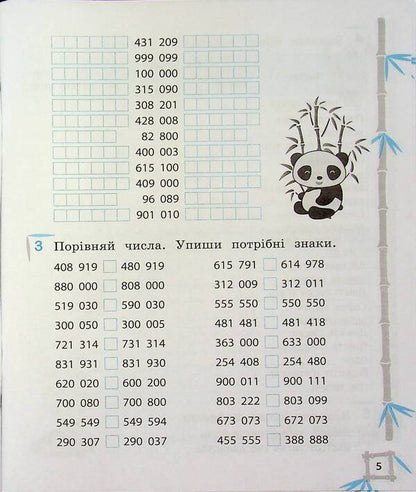 431 209
999 099
100 000
315 090
308 201
428 008
82 800
400 003
615 100
409 000
96 089
901 010
3 Порівняй числа. Упиши потрібні знаки.
408 919 480 919 615 791 614 978
880 000 808 000 312 009 312 011
519 030 590 030 555 550 550 550
300 050 300 005 481 481 481 418
721 314 731 314 363 000 633 000
831 931 831 930 254 408 254 480
620 020 600 200 900 011 900 111
700 080 700 800 803 222 803 099
549 549 549 594 673 073 672 073
290 307 290 037 455 555 388 888
5